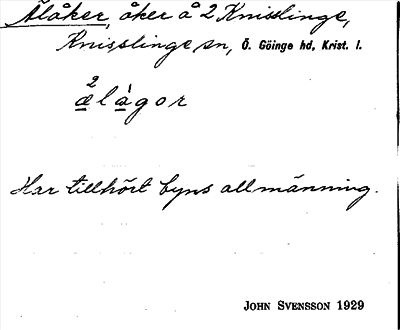 Ålåker, åker å 2 Knisslinge,
Knisslinge sn, Ö. Göinge hd, Krist. l.
2
æ l å̀ g o r
Har tillhört byns allmänning.
JOHN SVENSSON 1929